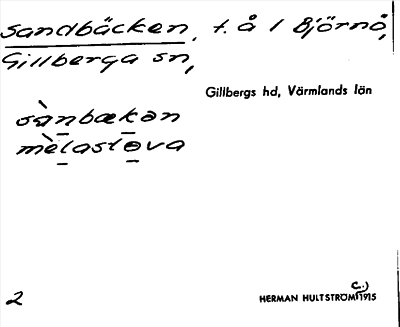 Sandbäcken, t. å / Björnö,
Gillberga sn,
Gillbergs hd, Värmlands län
sànbækən
mèlastova
2
HERMAN HULTSTRÖM c.) 1915